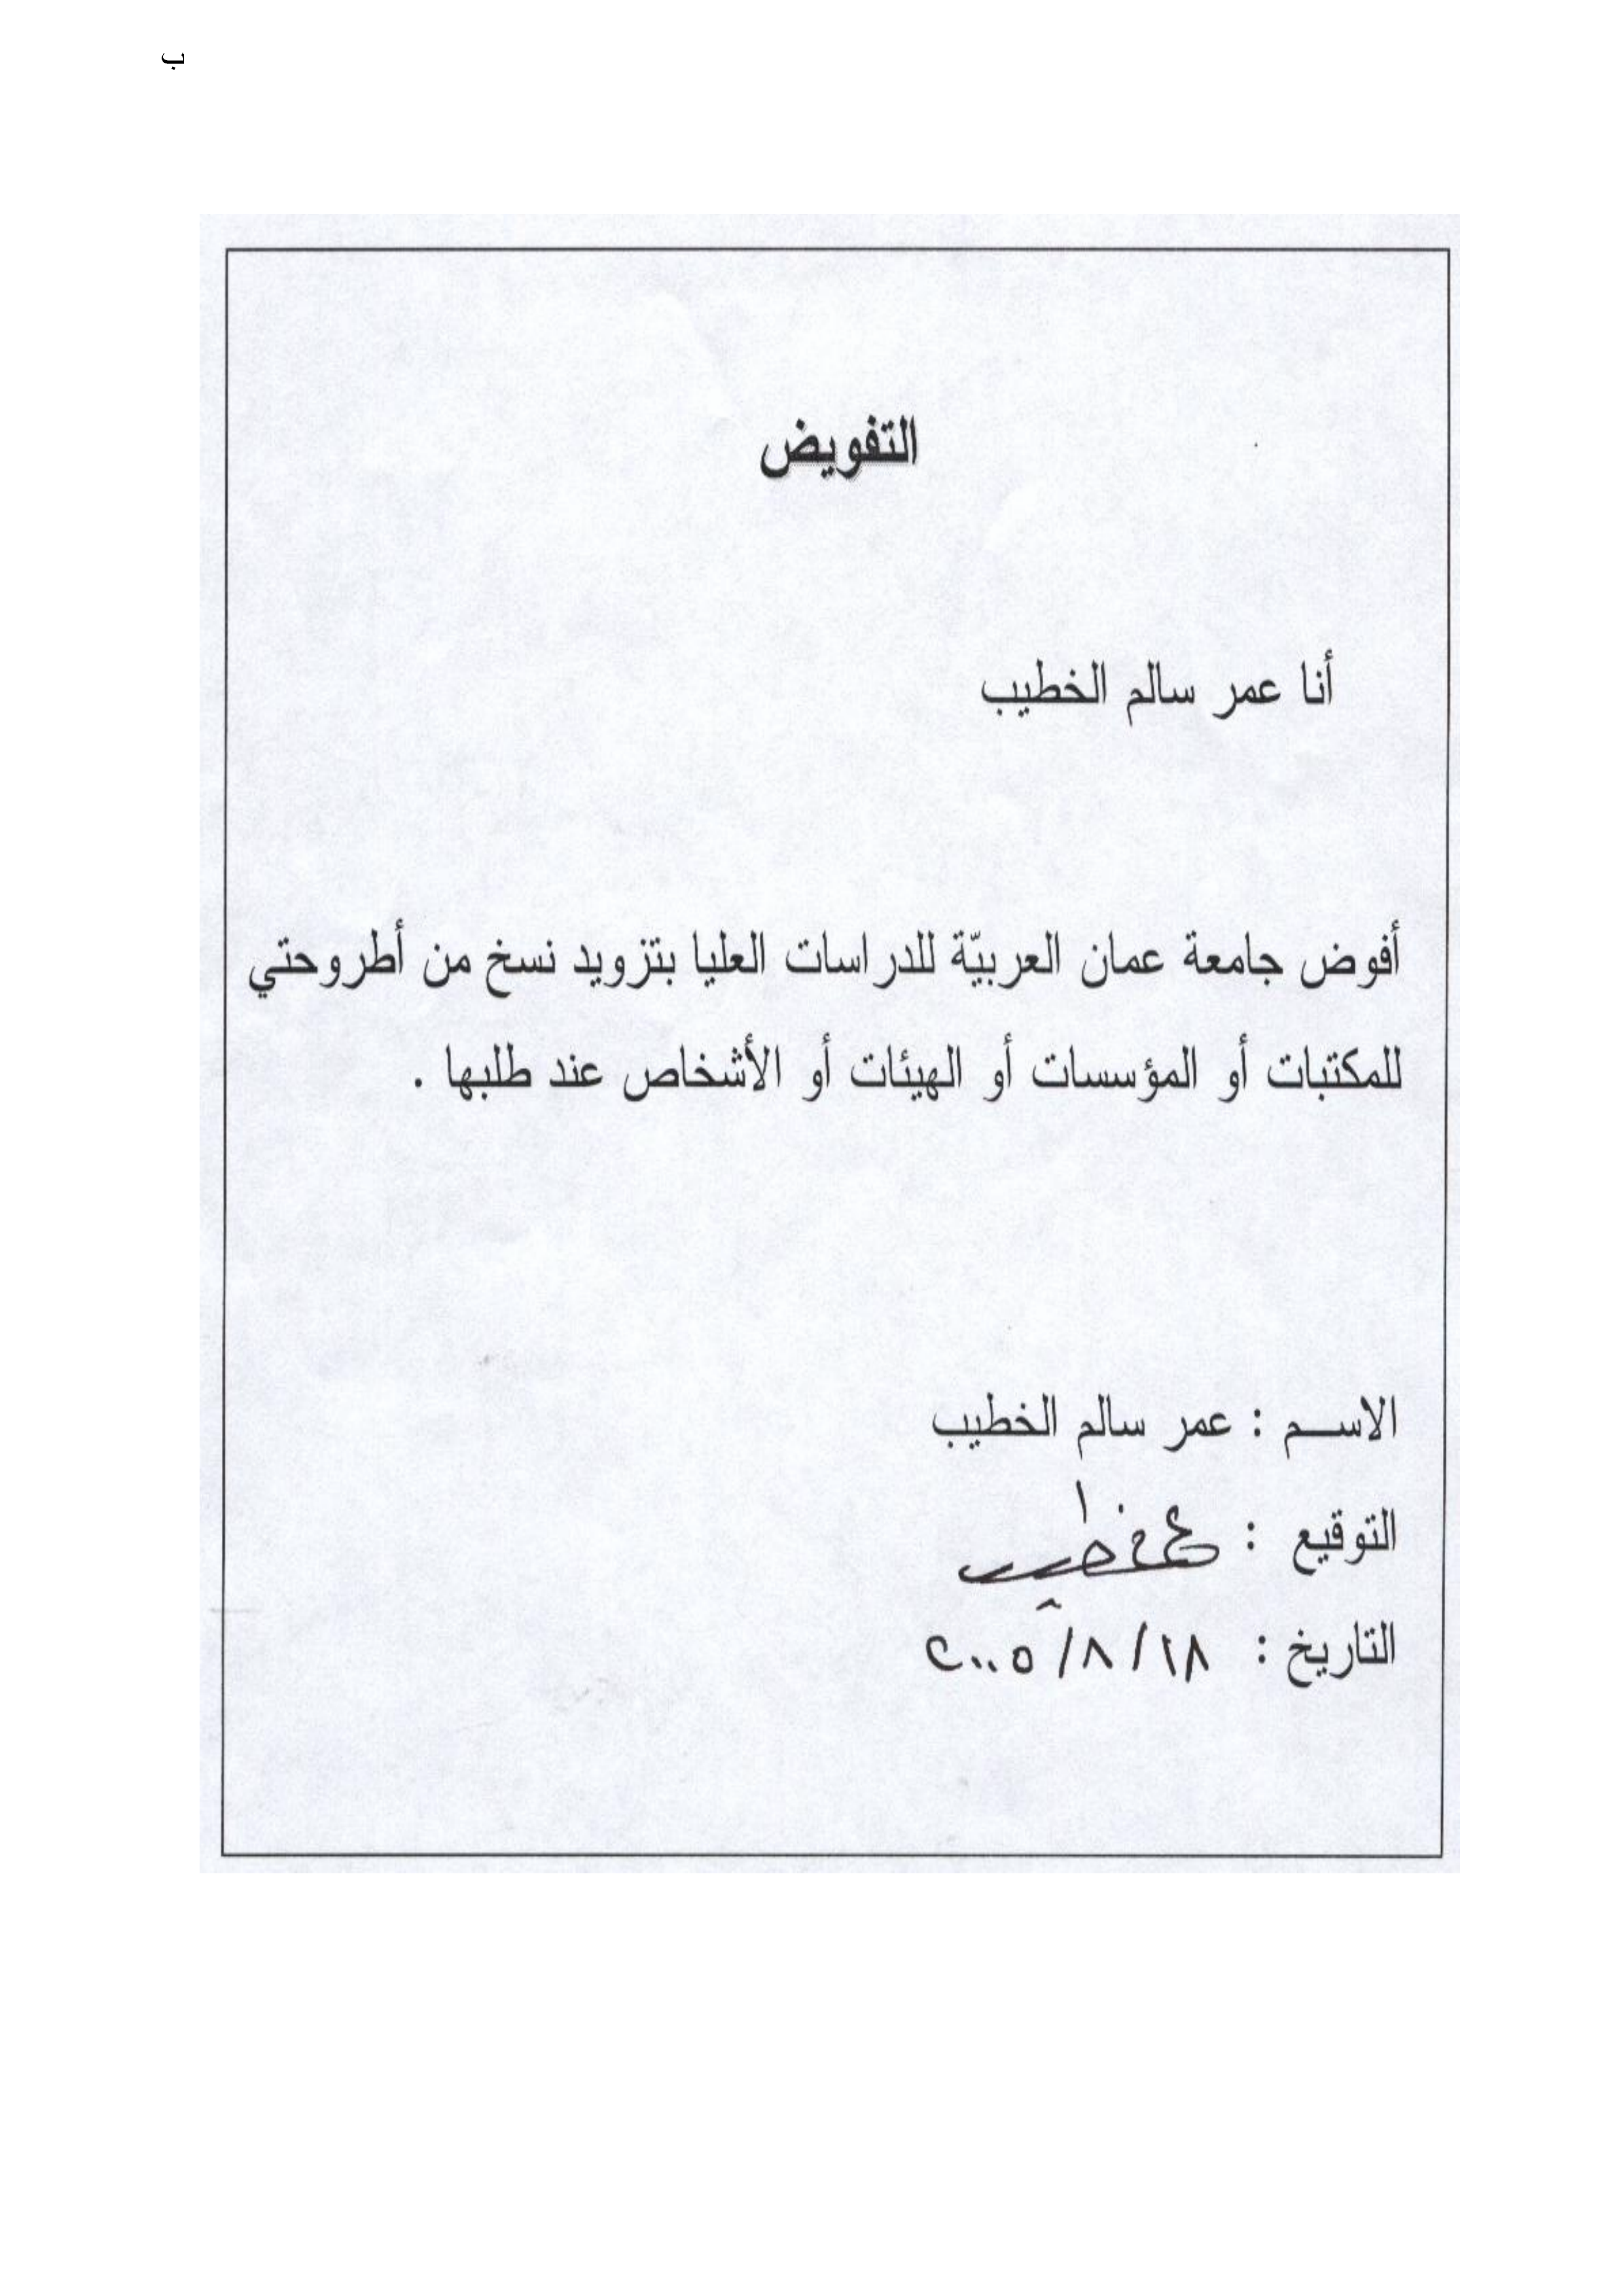 ب
التفويض
أنا عمر سالم الخطيب
أفوض جامعة عمان العربيّة للدراسات العليا بتزويد نسخ من أطروحتي
للمكتبات أو المؤسسات أو الهيئات أو الأشخاص عند طلبها .
الاســم : عمر سالم الخطيب
التوقيع :
التاريخ : ١٨/ ٨/ ٢٠٠٥